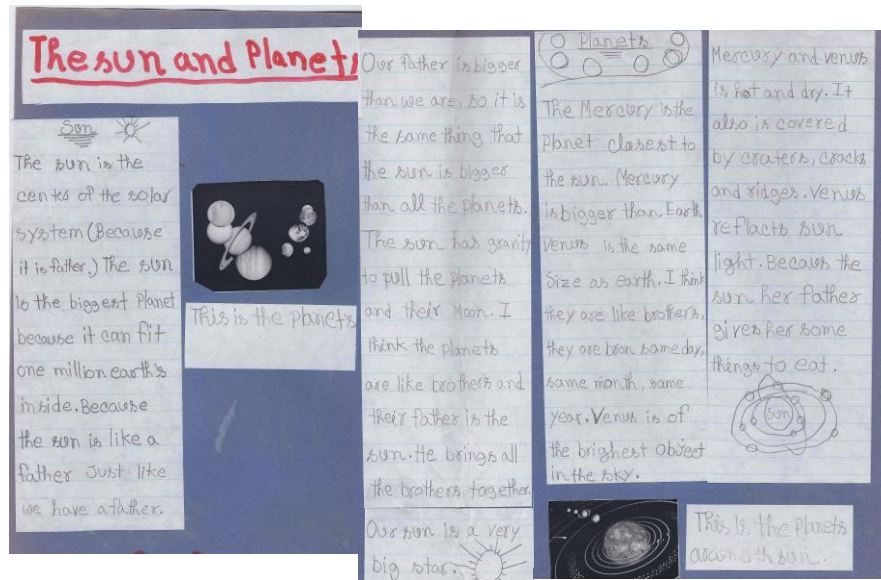 The sun and Planets
Sun
The sun is the
center of the solar
system (Because
it is father.) The sun
is the biggest Planet
because it can fit
one million earth's
inside. Because
the sun is like a
father Just like
we have a father.
This is the planets
Our father is bigger
than we are, so it is
the same thing that
the sun is bigger
than all the planets.
The sun has gravity
to pull the planets
and their Moon. I
think the planets
are like brothers and
their father is the
sun. He brings all
the brothers together.
Our sun is a very
big star.
Planets
The Mercury is the
Planet closest to
the sun. Mercury
is bigger than Earth
Venus is the same
Size as earth. I think
they are like brothers,
they are bron same day,
same month, same
year. Venus is of
the brighest object
in the sky.
Mercury and venus
is hot and dry. It
also is covered
by craters, cracks
and ridges. Venus
reflacts sun
light. Becaus the
sun her father
gives her some
things to eat.
Sun
This is the planets
around th sun.